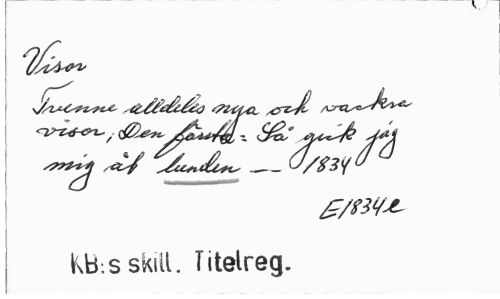 Visor
Tvenne alldeles nya och vackra
visor; Den första: Så gick jag
mig åt lunden — 1834
E1834e
KB:s skill. Titelreg.